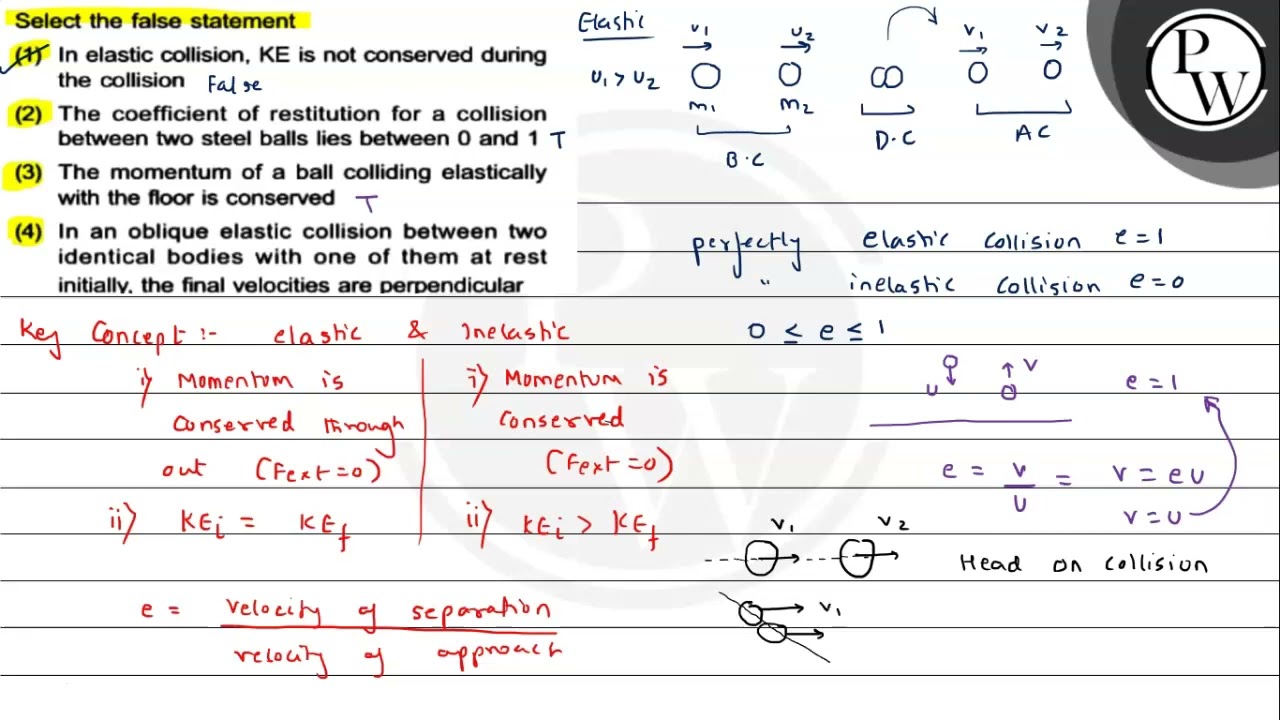 Select the false statement
(1) In elastic collision, KE is not conserved during
the collision False
(2) The coefficient of restitution for a collision
between two steel balls lies between 0 and 1 T
(3) The momentum of a ball colliding elastically
with the floor is conserved T
(4) In an oblique elastic collision between two
identical bodies with one of them at rest
initially, the final velocities are perpendicular
Elastic
υ1 υ2 v1 v2
υ1 > υ2
m1 m2
B.C D.C AC
PW
perfectly elastic collision e=1
" inelastic collision e=0
0 ≤ e ≤ 1
Key Concept :- elastic & Inelastic
i) Momentum is
conserved through
out (Fext=0)
ii) KEi = KEf
i) Momentum is
conserved
(Fext=0)
ii) KEi > KEf
e = velocity of separation
velocity of approach
υ v e=1
e = v/υ = v = eυ
v=υ
v1 v2
Head on collision
v1